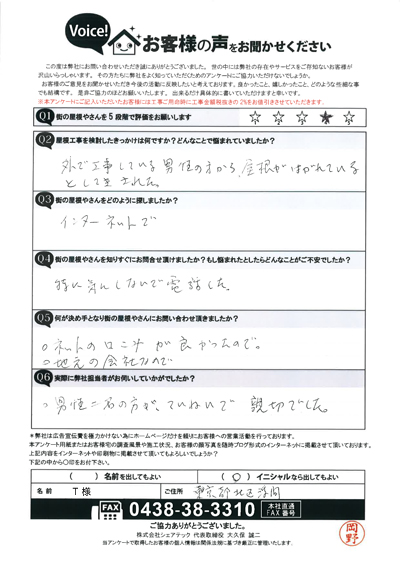 Voice!
お客様の声をお聞かせください
この度は弊社にお問い合わせいただき誠にありがとうございました。世の中には弊社の存在やサービスをご存知ないお客様が
沢山いらっしゃいます。その方たちに弊社をよく知っていただくためのアンケートにご協力いただけないでしょうか。
お客様のご意見をお聞かせいただき今後の活動に反映したいと考えております。良かったこと、嬉しかったこと、どのような些細な事
でも結構です。是非ご協力のほどお願いいたします。出来るだけ具体的に書いていただけますと幸いです。
※本アンケートにご記入いただいたお客様には工事ご用命時に工事金額税抜きの2%をお値引きさせていただきます。
Q1 街の屋根やさんを5段階で評価をお願いします ☆ ☆ ☆ ★ ☆
Q2 屋根工事を検討したきっかけは何ですか?どんなことで悩まれていましたか?
外で工事している男性の方から、屋根がはがれている
と
Q3 街の屋根やさんをどのように探しましたか?
インターネットで
Q4 街の屋根やさんを知りすぐにお問合せ頂けましたか?もし悩まれたとしたらどんなことがご不安でしたか?
特に気にしないで電話した。
Q5 何が決め手となり街の屋根やさんにお問い合わせ頂きましたか?
○ネットの口コミが良かったので。
○地元の会社なので
Q6 実際に弊社担当者がお伺いしていかがでしたか?
○男性二名の方が、ていねいで 親切でした。
*弊社は広告宣伝費を極力かけない為にホームページだけを頼りにお客様への営業活動を行っております。
本アンケート用紙またはお客様宅の調査風景や施工状況、お客様の顔写真を随時ブログ形式のインターネットに掲載させて頂いております。
上記内容をインターネットや印刷物に掲載させて頂いてもよろしいでしょうか?
下記の中から〇印をお付下さい。
( ) 名前を出してもよい ( ○ ) イニシャルなら出してもよい
名前 T様 ご住所 東京都北区
FAX 0438-38-3310 本社直通 FAX番号
ご協力ありがとうございました。
株式会社シェアテック 代表取締役 大久保 誠二
当アンケートで取得したお客様の個人情報は関係法規に基づき厳正に管理いたします。
岡野